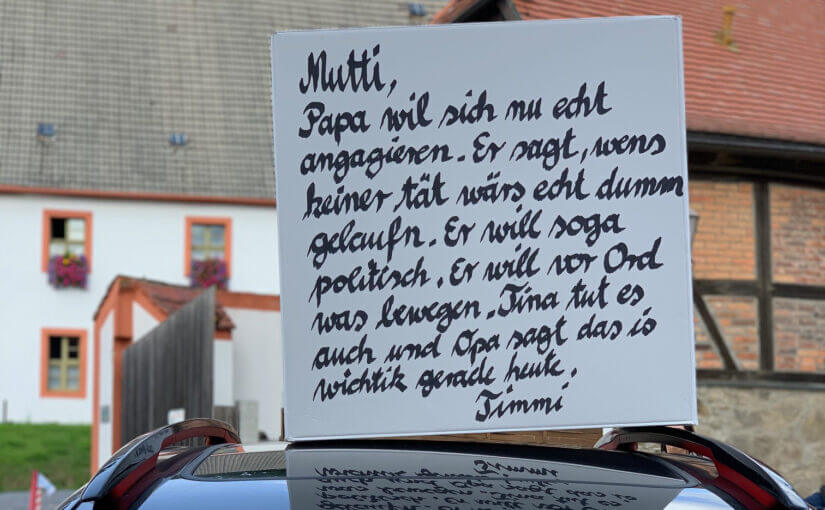 Mutti,
Papa wil sich nu echt
angagieren. Er sagt, wens
keiner tät wärs echt dumm
gelaufn. Er will soga
politisch. Er will vor Ord
was bewegen. Tina tut es
auch und Opa sagt das is
wichtik gerade heute.
Timmi